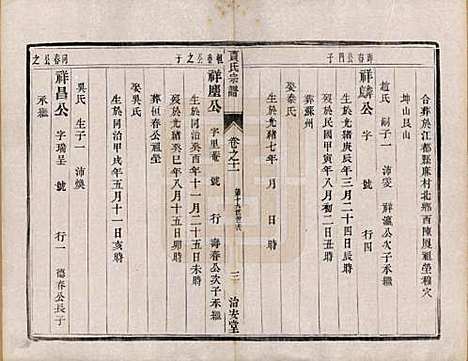 壽春公四子
合葬於江都縣麻村北鄉西陳廈祖塋穆穴
坤山艮山
趙氏 嗣子一 沛榮 祥瀛公次子承繼
祥麟公 字 號 行四
生於光緒庚辰年三月二十四日辰時
歿於民國甲寅年八月初二日丑時
葬蘇州
娶秦氏
生於光緒七年 月 日 時
黃氏宗譜
卷之十一
三
治安堂
祖春公之子
祥塵公 字里菴 號 行 壽春公次子承繼
生於同治癸酉年十一月二十五日未時
歿於光緒癸巳年八月十五日卯時
葬恒春公祖塋
娶吳氏
生於同治甲戌年五月十一日亥時
同春公之
吳氏 生子一 沛煥
祥昌公 字瑞呈 號 行一 德春公長子
承繼